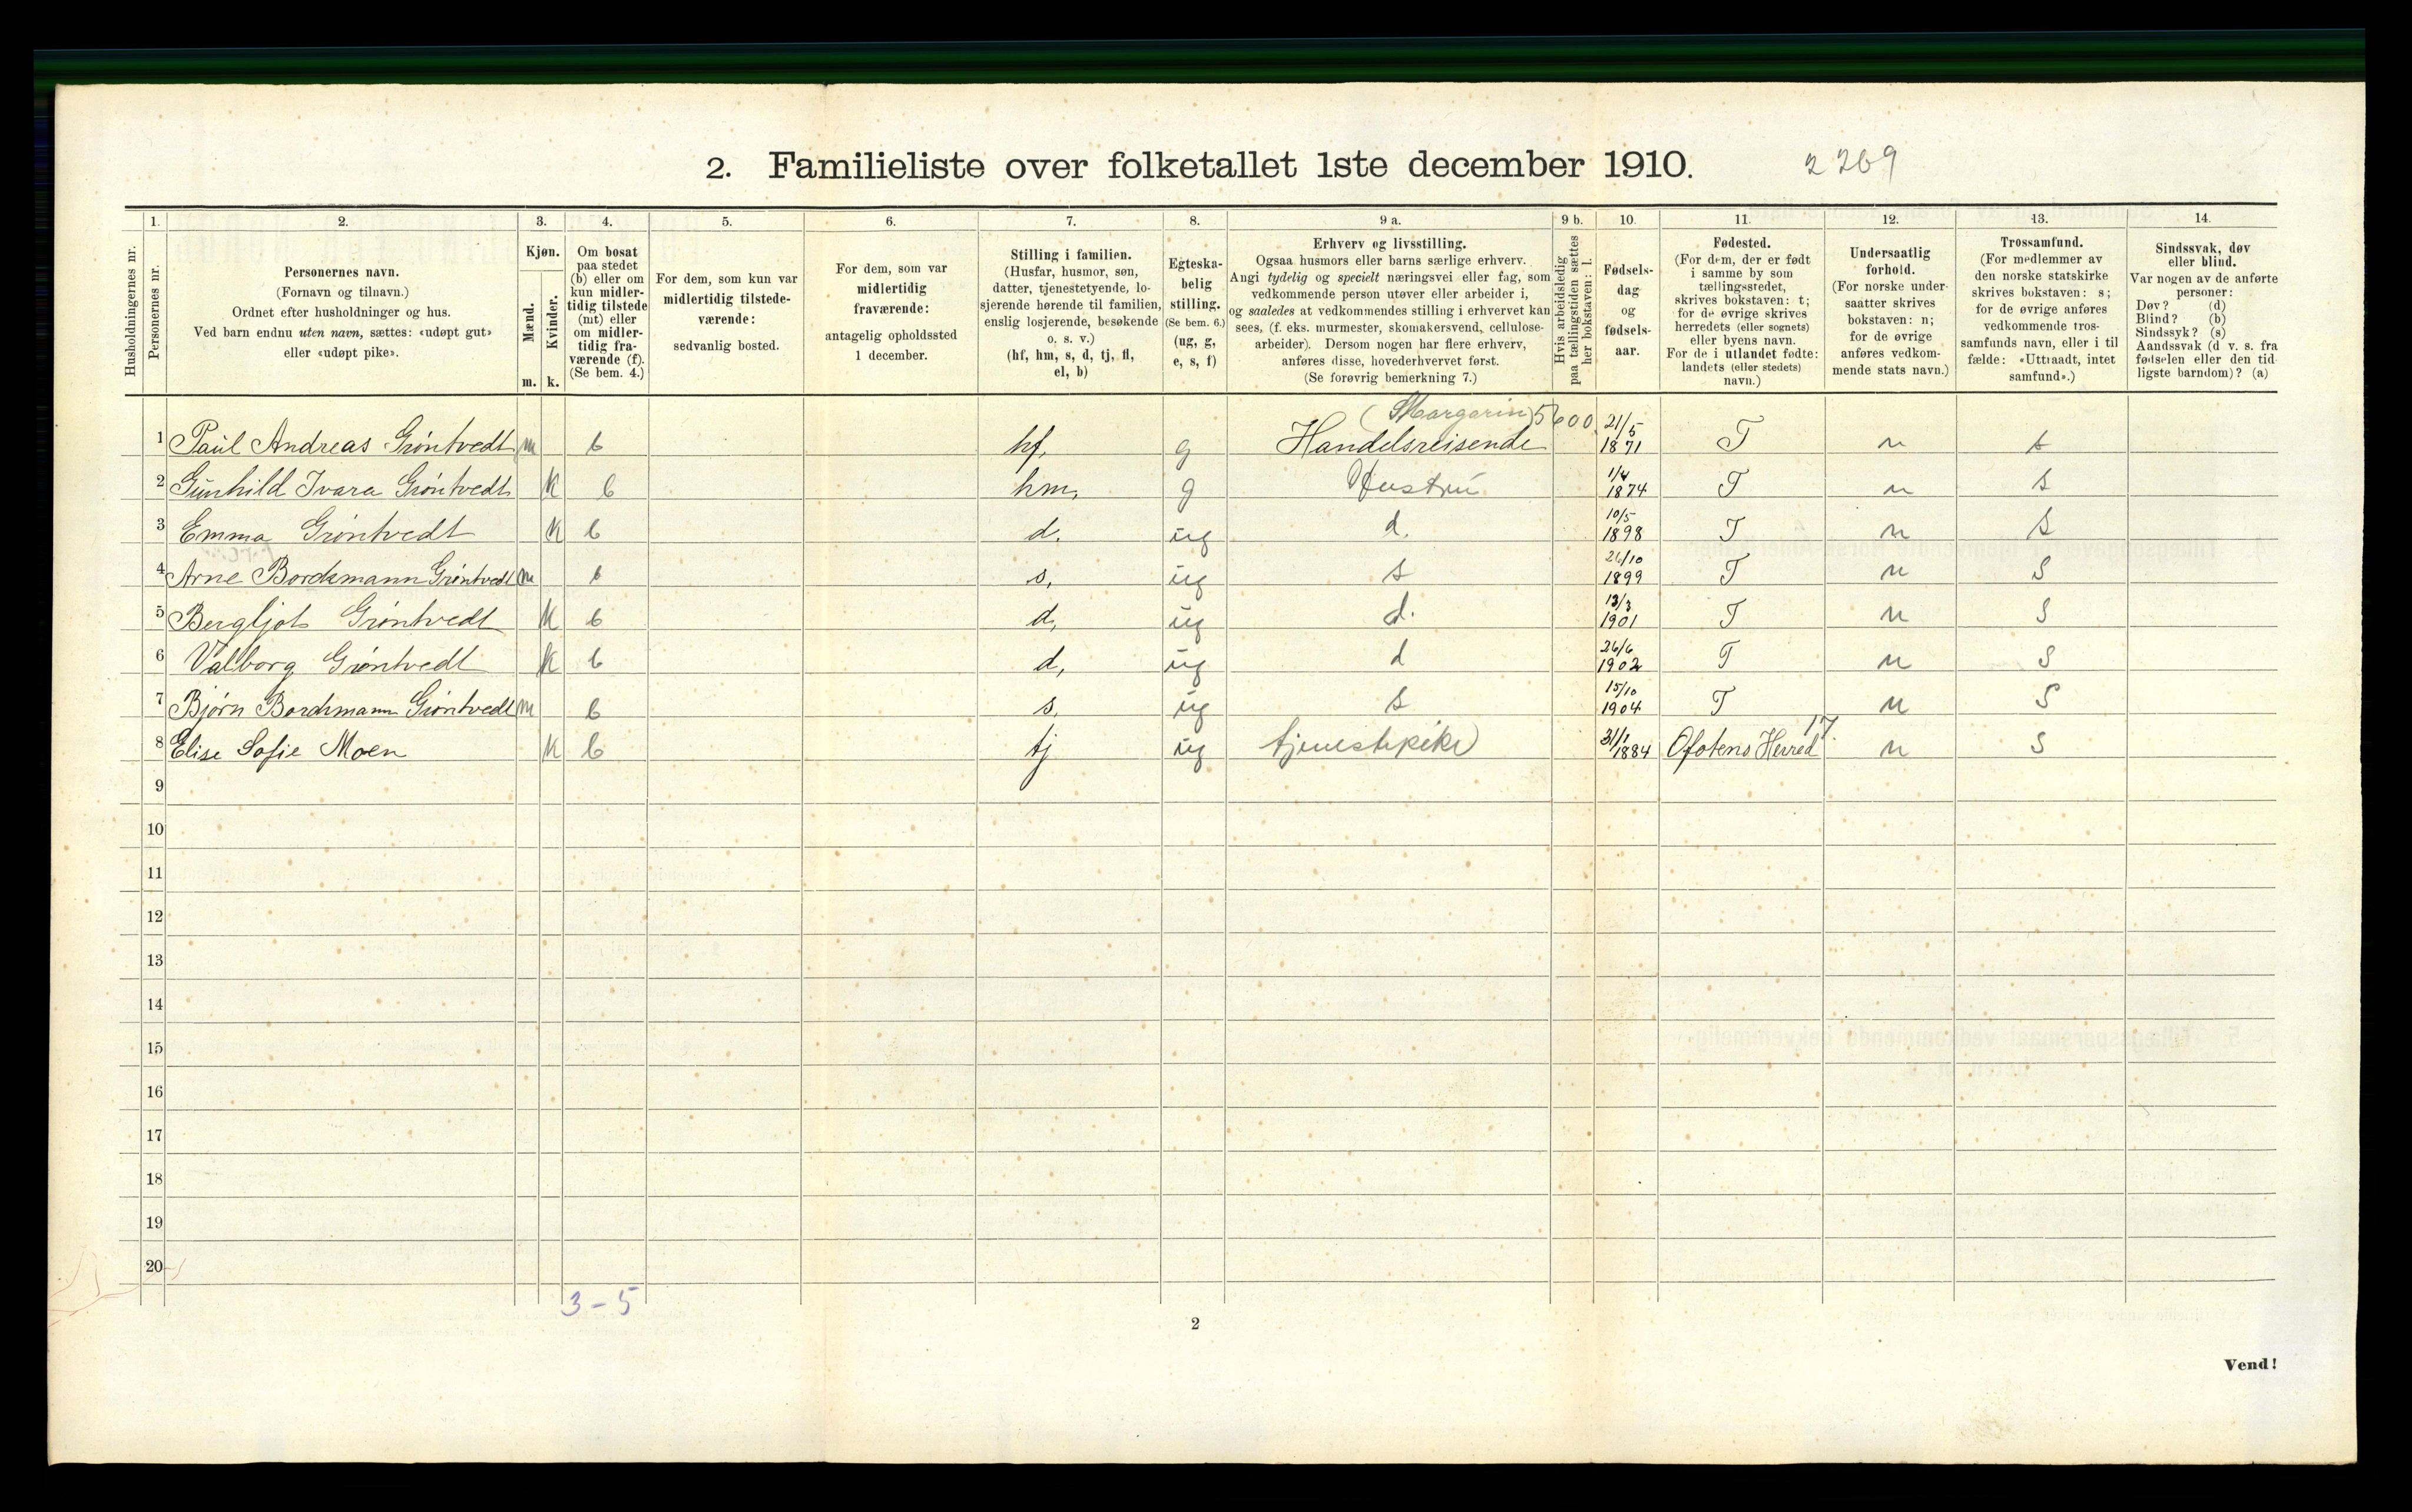 2. Familieliste over folketallet 1ste december 1910. 2269
1. 2. 3. 4. 5. 6. 7. 8. 9 a. 9 b. 10. 11. 12. 13. 14.
Husholdningernes nr.
Personernes nr.
Personernes navn.
(Fornavn og tilnavn.)
Ordnet efter husholdninger og hus.
Ved barn endnu uten navn, sættes: «udøpt gut»
eller «udøpt pike».
Kjøn.
Mænd.
Kvinder.
m. k.
Om bosat
paa stedet
(b) eller om
kun midler-
tidig tilstede
(mt) eller
om midler-
tidig fra-
værende (f).
(Se bem. 4.)
For dem, som kun var
midlertidig tilstede-
værende:
sedvanlig bosted.
For dem, som var
midlertidig
fraværende:
antagelig opholdssted
1 december.
Stilling i familien.
(Husfar, husmor, søn,
datter, tjenestetyende, lo-
sjerende hørende til familien,
enslig losjerende, besøkende
o. s. v.)
(hf, hm, s, d, tj, fl,
el, b)
Egteska-
belig
stilling.
(Se bem. 6.)
(ug, g,
e, s, f)
Erhverv og livsstilling.
Ogsaa husmors eller barns særlige erhverv.
Angi tydelig og specielt næringsvei eller fag, som
vedkommende person utøver eller arbeider i,
og saaledes at vedkommendes stilling i erhvervet kan
sees, (f. eks. murmester, skomakersvend, cellulose-
arbeider). Dersom nogen har flere erhverv,
anføres disse, hovederhvervet først.
(Se forøvrig bemerkning 7.)
Hvis arbeidsledig
paa tællingstiden sættes
her bokstaven: l.
Fødsels-
dag
og
fødsels-
aar.
Fødested.
(For dem, der er født
i samme by som
tællingsstedet,
skrives bokstaven: t;
for de øvrige skrives
herredets (eller sognets)
eller byens navn.
For de i utlandet fødte:
landets (eller stedets)
navn.)
Undersaatlig
forhold.
(For norske under-
saatter skrives
bokstaven: n;
for de øvrige
anføres vedkom-
mende stats navn.)
Trossamfund.
(For medlemmer av
den norske statskirke
skrives bokstaven: s;
for de øvrige anføres
vedkommende tros-
samfunds navn, eller i til
fælde: «Uttraadt, intet
samfund».)
Sindssvak, døv
eller blind.
Var nogen av de anførte
personer:
Døv? (d)
Blind? (b)
Sindssyk? (s)
Aandssvak (d v. s. fra
fødselen eller den tid-
ligste barndom)? (a)
(Margarin) 5600 21/5
1 Paul Andreas Grøntvedt m b hf. g Handelsreisende 1871 T n s
2 Gunhild Ivara Grøntvedt k b hm. g Hustru 1/4 1874 T n s
3 Emma Grøntvedt k b d. ug d. 10/5 1898 T n s
4 Arne Bordsmann Grøntvedt m b s. ug s 26/10 1899 T n S
5 Bergljot Grøntvedt k b d. ug d. 13/3 1901 T n S
6 Valborg Grøntvedt k b d. ug d 26/6 1902 T n S
7 Bjørn Bordsmann Grøntvedt m b s. ug s 15/10 1904 T n S
8 Elise Sofie Moen k b tj ug tjenestepike 31/1 1884 Ofotens Herred 17 n S
9
10
11
12
13
14
15
16
17
18
19
20
3-5
2
Vend!